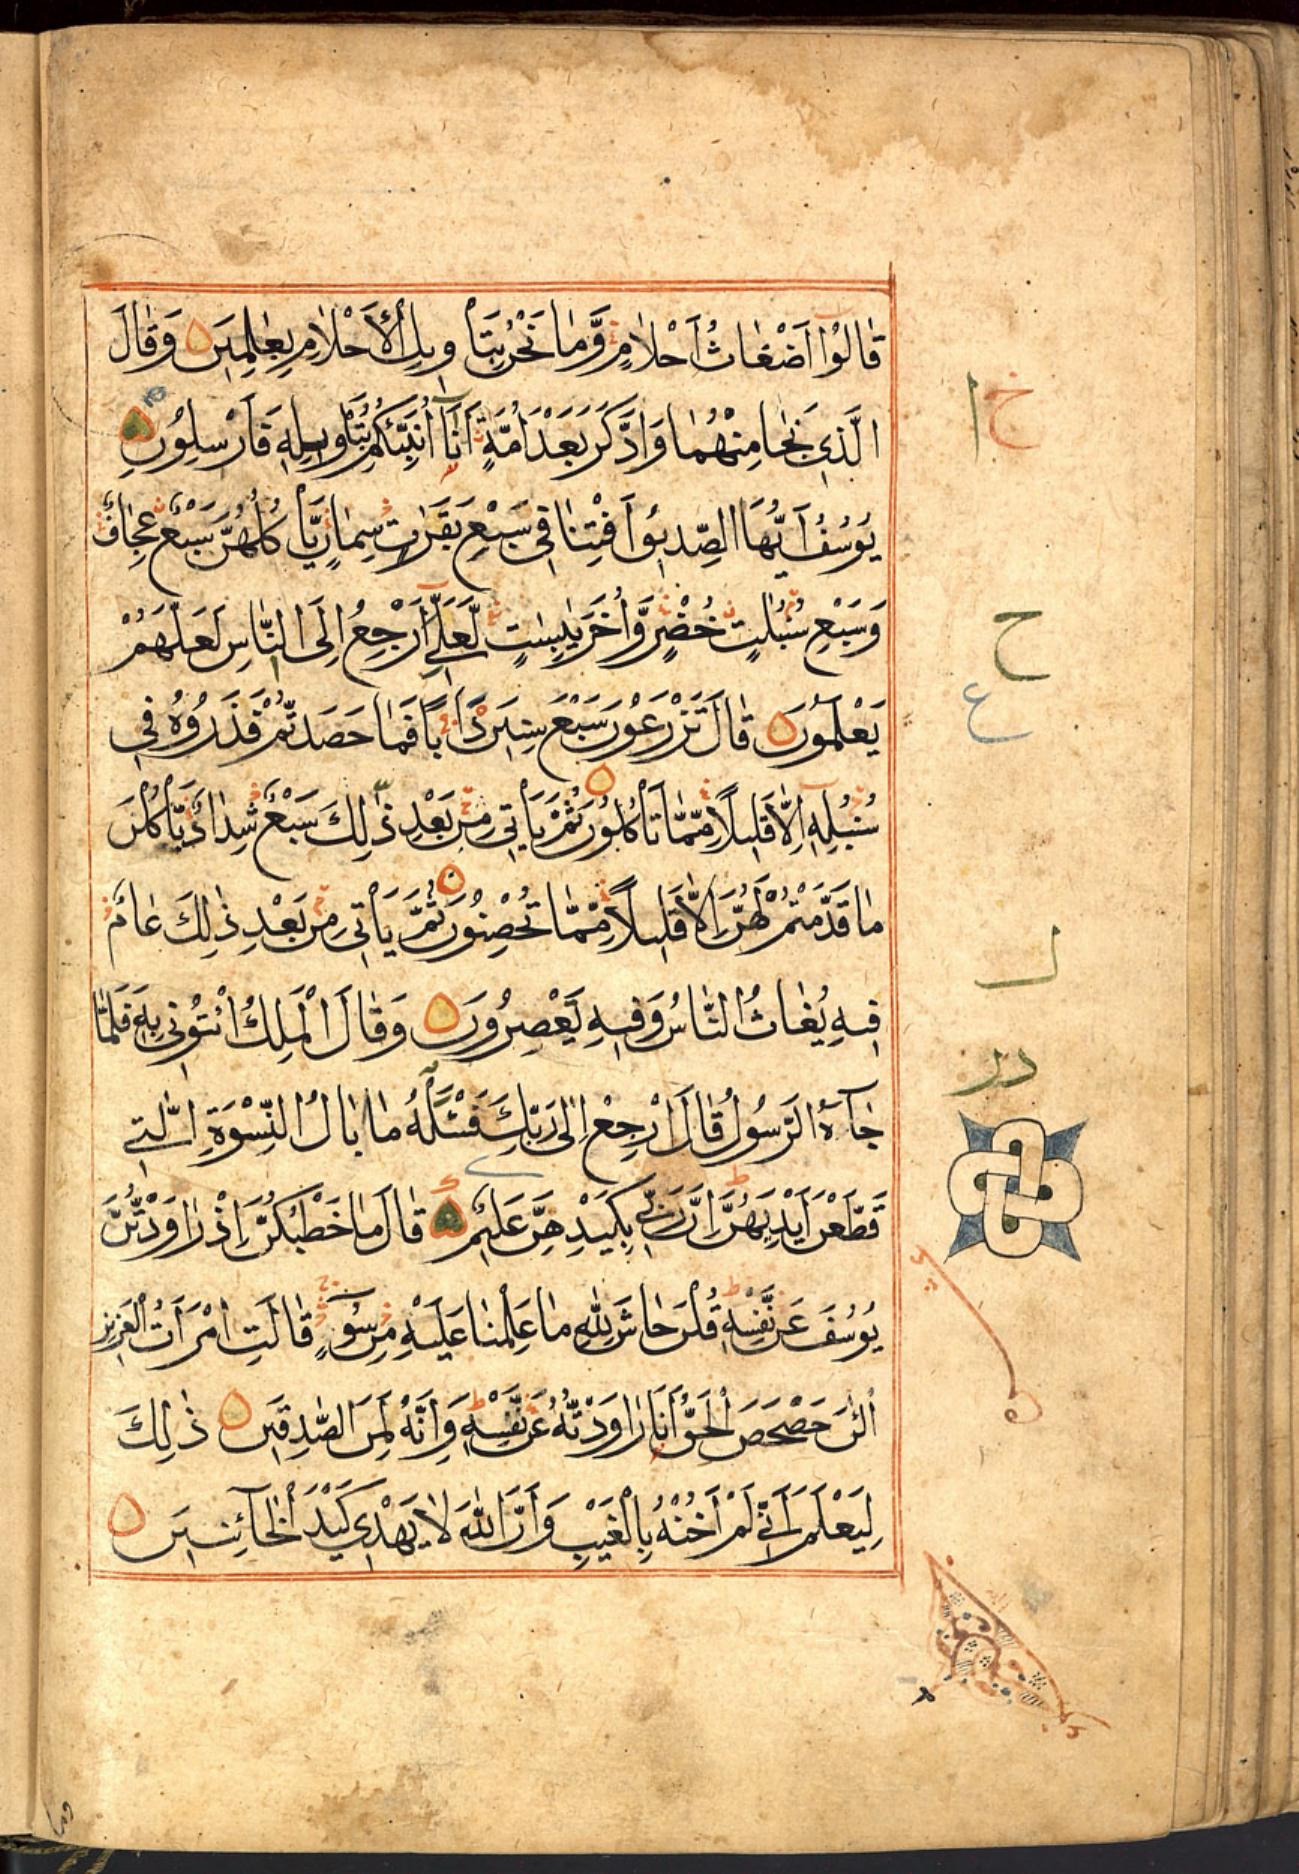 قَالُوْا اَضْغَاثُ اَحْلَامٍ وَّمَا نَحْنُ بِتَاْوِيْلِ الْاَحْلَامِ بِعٰلِمِيْنَ وَقَالَ
الَّذِيْ نَجَا مِنْهُمَا وَادَّكَرَ بَعْدَ اُمَّةٍ اَنَا اُنَبِّئُكُمْ بِتَاْوِيْلِهٖ فَاَرْسِلُوْنِ
يُوْسُفُ اَيُّهَا الصِّدِّيْقُ اَفْتِنَا فِيْ سَبْعِ بَقَرٰتٍ سِمَانٍ يَّاْكُلُهُنَّ سَبْعٌ عِجَافٌ
وَّسَبْعِ سُنْۢبُلٰتٍ خُضْرٍ وَّاُخَرَ يٰبِسٰتٍ لَّعَلِّيْ اَرْجِعُ اِلَى النَّاسِ لَعَلَّهُمْ
يَعْلَمُوْنَ قَالَ تَزْرَعُوْنَ سَبْعَ سِنِيْنَ دَاَبًا فَمَا حَصَدْتُّمْ فَذَرُوْهُ فِيْ
سُنْۢبُلِهٖ اِلَّا قَلِيْلًا مِّمَّا تَاْكُلُوْنَ ثُمَّ يَاْتِيْ مِنْ بَعْدِ ذٰلِكَ سَبْعٌ شِدَادٌ يَّاْكُلْنَ
مَا قَدَّمْتُمْ لَهُنَّ اِلَّا قَلِيْلًا مِّمَّا تُحْصِنُوْنَ ثُمَّ يَاْتِيْ مِنْ بَعْدِ ذٰلِكَ عَامٌ
فِيْهِ يُغَاثُ النَّاسُ وَفِيْهِ يَعْصِرُوْنَ وَقَالَ الْمَلِكُ ائْتُوْنِيْ بِهٖ فَلَمَّا
جَآءَهُ الرَّسُوْلُ قَالَ ارْجِعْ اِلٰى رَبِّكَ فَسْـَٔلْهُ مَا بَالُ النِّسْوَةِ الّٰتِيْ
قَطَّعْنَ اَيْدِيَهُنَّ اِنَّ رَبِّيْ بِكَيْدِهِنَّ عَلِيْمٌ قَالَ مَا خَطْبُكُنَّ اِذْ رَاوَدْتُّنَّ
يُوْسُفَ عَنْ نَّفْسِهٖ قُلْنَ حَاشَ لِلّٰهِ مَا عَلِمْنَا عَلَيْهِ مِنْ سُوْٓءٍ قَالَتِ امْرَاَتُ الْعَزِيْزِ
الْـٰٔنَ حَصْحَصَ الْحَقُّ اَنَا رَاوَدْتُّهٗ عَنْ نَّفْسِهٖ وَاِنَّهٗ لَمِنَ الصّٰدِقِيْنَ ذٰلِكَ
لِيَعْلَمَ اَنِّيْ لَمْ اَخُنْهُ بِالْغَيْبِ وَاَنَّ اللّٰهَ لَا يَهْدِيْ كَيْدَ الْخَآئِنِيْنَ
ح
ع
وما